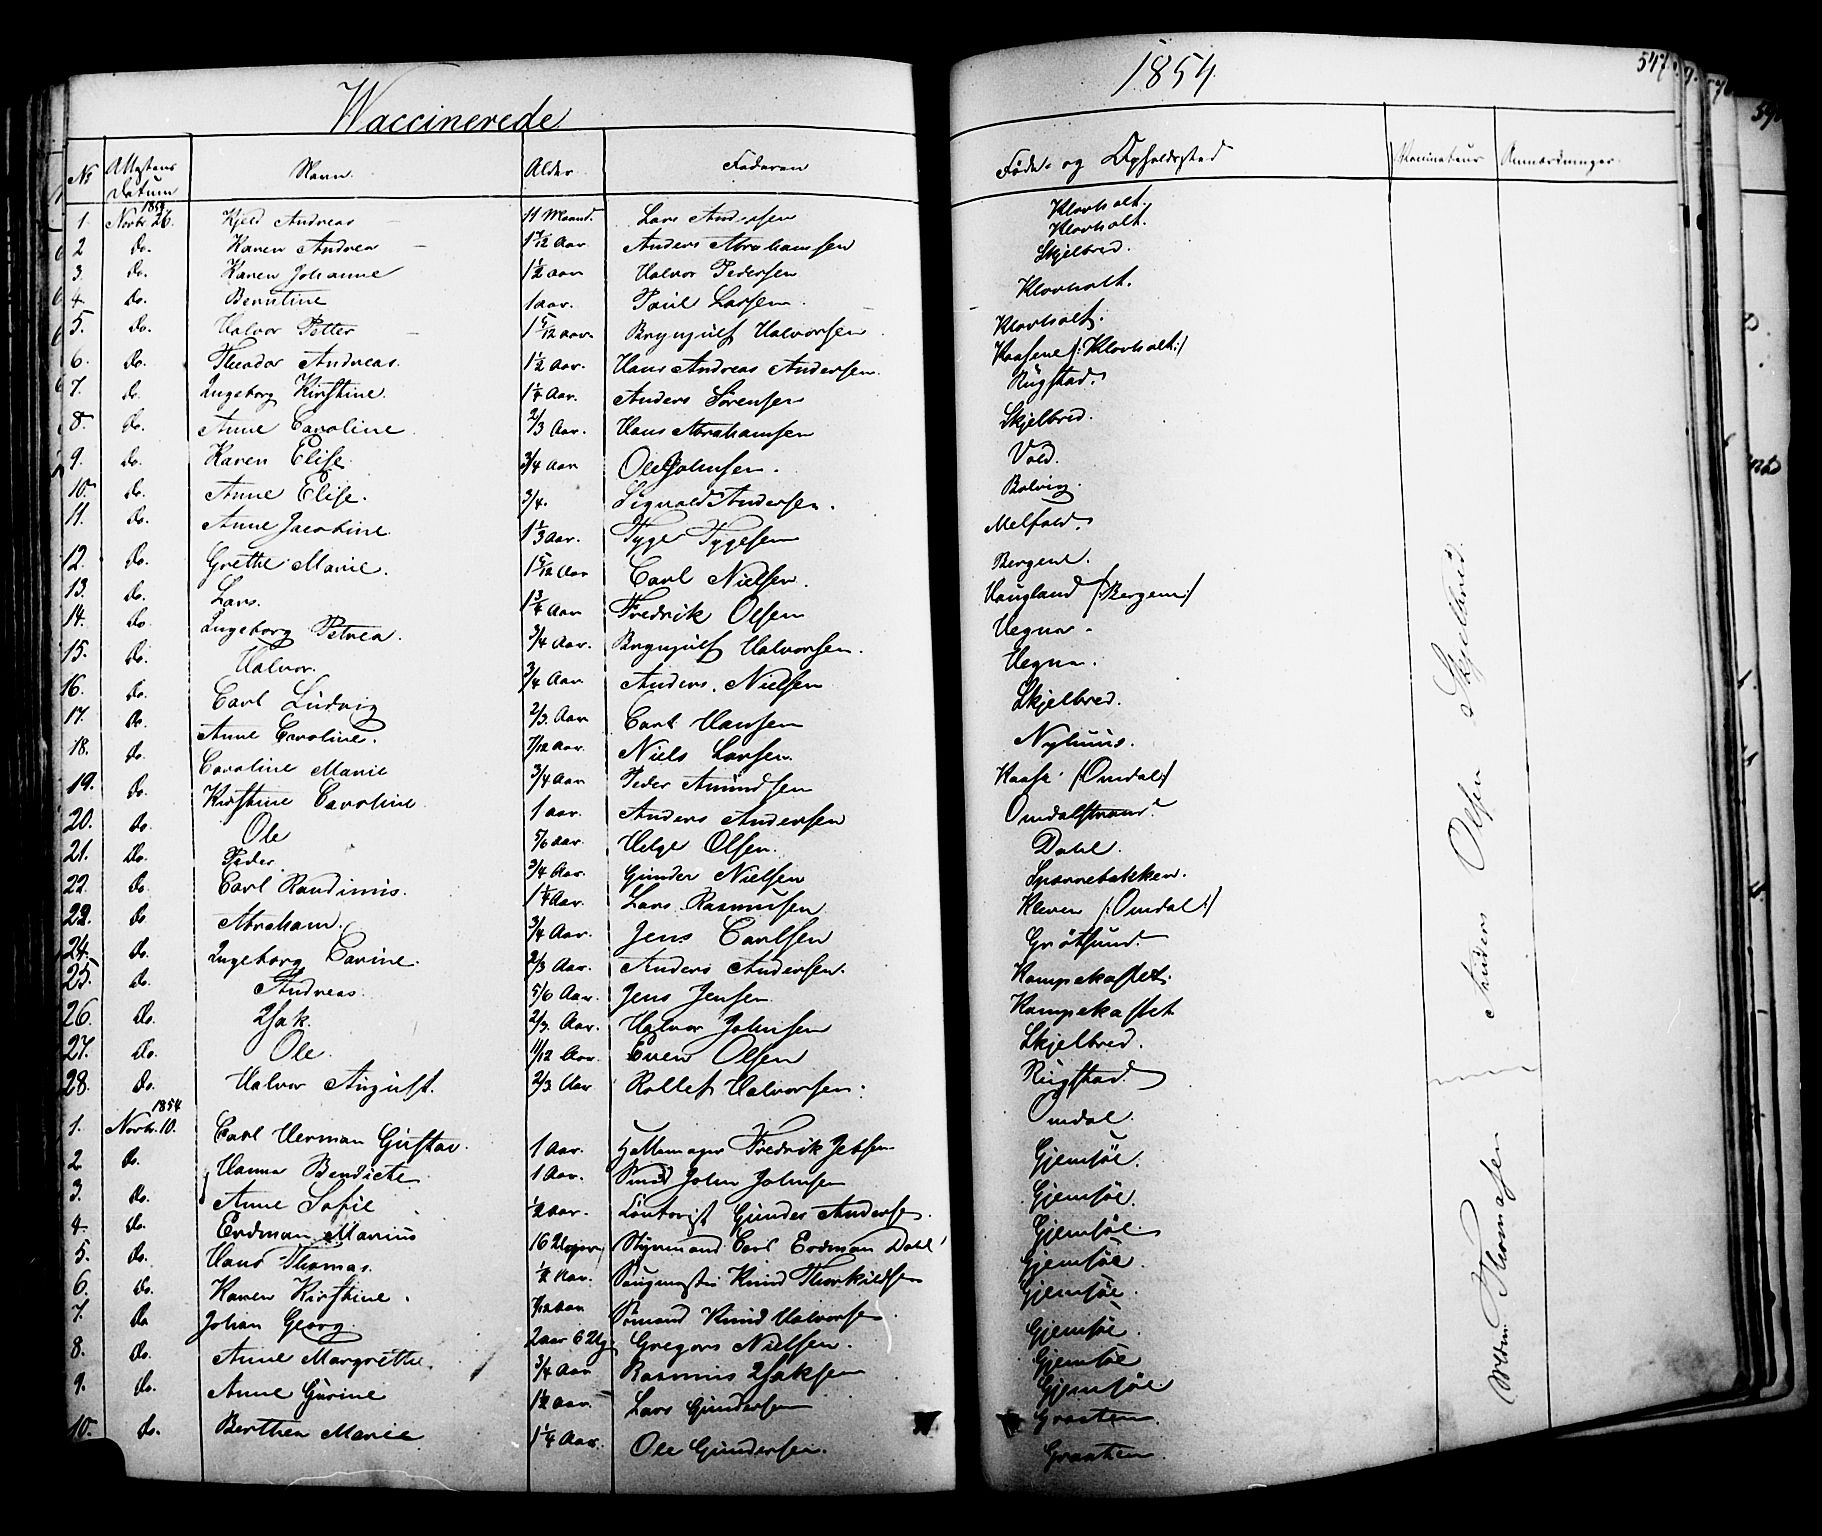 Waccinerede
1854
547
No Attestens Datum Navn Alder Faderen Føde- og Opholdssted Vaccinateur Anmærkninger
1. 1854 Novbr. 26. Kjeld Andreas 11 Maaned. Lars Andersen Klovholt.
2 Do. Karen Andrea 1 7/12 Aar Anders Abrahamsen Klovholt.
3 Do. Karen Johanne 1 1/2 aar Halvor Pedersen Skjelbred.
4. Do. Berntine 1 aar. Poul Larsen Klovholt.
5. Do. Halvor Petter 1 5/12 aar. Brynjulf Halvorsen Klovholt.
6. Do. Theodor Andreas. 1 1/2 Aar. Hans Andreas Andersen. Kaasene /:Klovholt:/
7. Do. Ingeborg Kirstine. 1 1/4 Aar. Anders Sørensen Rugstad.
8. Do. Anne Caroline 2/3 Aar. Hans Abrahamsen Skjelbred.
9. Do. Karen Elise. 3/4 Aar Ole Johnsen. Vold.
10. Do. Anne Elise. 3/4. Sigvald Andersen. Bolvig.
11. Do. Anne Jacobine. 1 1/3 Aar. Tyge Tygesen Melfald.
12. Do. Grethe Marie. 1 5/12 Aar Carl Nielsen. Bergene.
13. Do. Lars. 1 3/4 Aar Fredrik Olsen Haugland /:Bergene:/
14. Do. Ingeborg Petrea. 3/4 Aar. Brynjulf Halvorsen. Vegna.
15. Do. Halvor. 3/4 Aar Anders Nielsen Vegna.
16. Do. Carl Ludvig 2/3. Aar Carl Hansen Skjelbred.
17. Do. Anne Caroline. 7/12 Aar. Niels Larsen Nyhuus.
18. Do. Caroline Marie 3/4 Aar Peder Amundsen Kaasa /:Omdal:/
19. Do. Kirstine Caroline 1 aar. Anders Andersen Omdalstrand
20. Do. Ole 5/6 aar. Helge Olsen. Dahl.
21. Do. Peder 3/4 Aar. Gunder Nielsen Sparrebakken.
22. Do. Carl Randinius. 1 1/4 Aar. Lars Rasmusen Kleven /:Omdal:/
23. Do Abraham. 3/4 Aar. Jens Carlsen Grøtsund.
24. Do. Ingeborg Carine. 2/3 Aar. Anders Andersen. Kampekastet.
25. Do. Andreas. 5/6 Aar. Jens Jensen Kampekastet
26. Do. Isak. 2/3. Aar. Halvor Johnsen Skjelbred.
27. Do. Ole. 11/12 Aar. Even Olsen Rugstad
28. Do. Halvor August. 2/3. Aar Rollef Halvorsen. Omdal.
Anders Olsen Skjelbred.
1. 1854 Novbr. 10. Carl Herman Gustav. 1 Aar. Fredrik Jebsen Gjemsøe.
2 Do. Hanna Bendicte 1 Aar. John Johnsen Gjemsøe.
3. Do. Anne Sofie 1/2 aar. Gunder Andersen. Gjemsøe.
4. Do. Erdman Marius 16 Uger Styrmand Carl Erdman Dahl Gjemsøe.
5. Do. Hans Thomas. 1/2 Aar. Knud Thorkildsen Gjemsøe.
6. Do. Karen Kirstine. 7/12 aar Sømand Knud Halvorsen Gjemsøe.
7. Do Johan Georg. 2 aar 6 Ug. Gregers Nielsen. Gjemsøe
8. Do. Anne Margrethe. 3/4 Aar Rasmus Isaksen Gjemsøe
9. Do. Anne Gurine 1 1/2 aar. Lars Gundersen Graaten.
10. Do. Berthea Marie 1 1/4 Aar. Ole Gundersen. Graaten
Thomasen